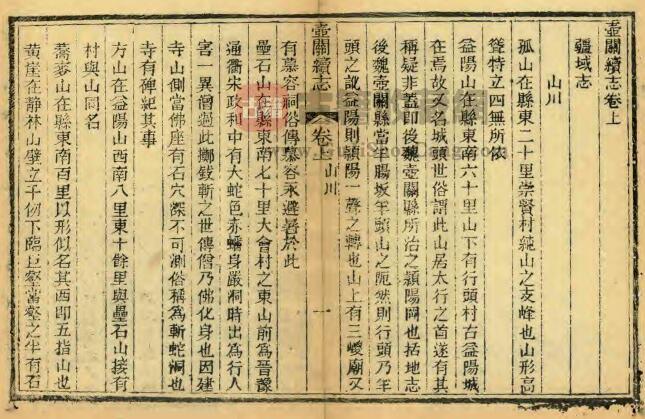 壺關續志卷上
疆域志
山川
孤山在縣東二十里崇賢村純山之支峰也山形高
聳特立四無所依
益陽山在縣東南六十里山下有行頭村古益陽城
在焉故又名城頭世俗謂此山居太行之首遂有其
稱疑非蓋即後魏壺關縣所治之潁陽岡也括地志
後魏壺關縣當羊腸坂羊頭山之阨然則行頭乃羊
頭之訛益陽則潁陽一聲之轉也山上有三嵕廟又
壺關續志 卷上 山川 一
有慕容祠俗傳慕容永避暑於此
壘石山在縣東南七十里大會村之東山前為晉豫
通衢宋政和中有大蛇色赤蠕身嚴洞時出為行人
害一異僧過此擲錫斬之世傳僧乃佛化身也因建
寺山側當佛座有石穴深不可測俗稱為斬蛇洞也
寺有碑紀其事
方山在益陽山西南八里東十餘里與壘石山接有
村與山同名
蕎麥山在縣東南百里以形似名其西即五指山也
黃崖在靜林山壁立千仞下臨巨壑當壑之半有石